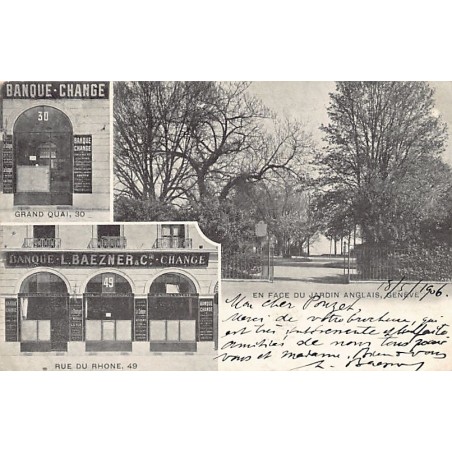 BANQUE · CHANGE
30
BANQUE CHANGE
GRAND QUAI, 30
BANQUE - L. BAEZNER & Cº - CHANGE
49
RUE DU RHONE, 49
EN FACE DU JARDIN ANGLAIS, GENÈVE
18/5/1906.
Mon cher
Merci de votre brochure qui
est très intéressante et
amitiés de nous tous pour
vous et madame. à vous
L. Baezner